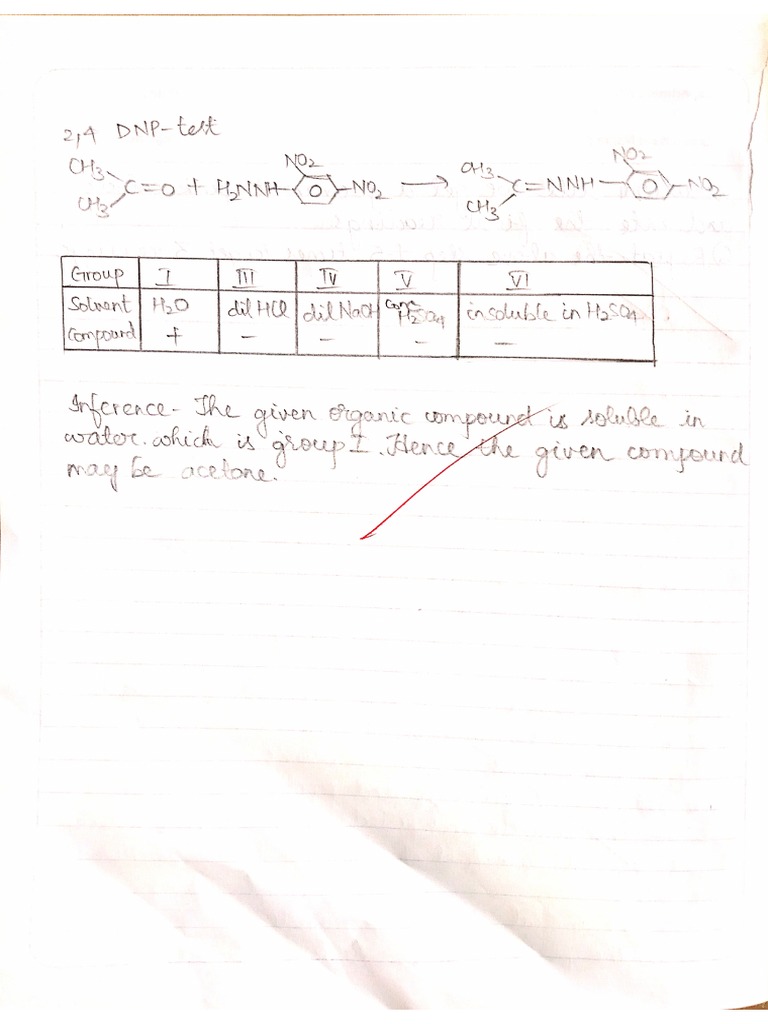 2,4 DNP-test
NO2 NO2
CH3 C=O + H2NNH- -NO2 → CH3 C=NNH- -NO2
CH3 CH3
Group I III IV V VI
Solvent H2O dil HCl dil NaOH Conc H2SO4 insoluble in H2SO4
Compound + - - - -
Inference- The given organic compound is soluble in
water. which is group I. Hence the given compound
may be acetone.